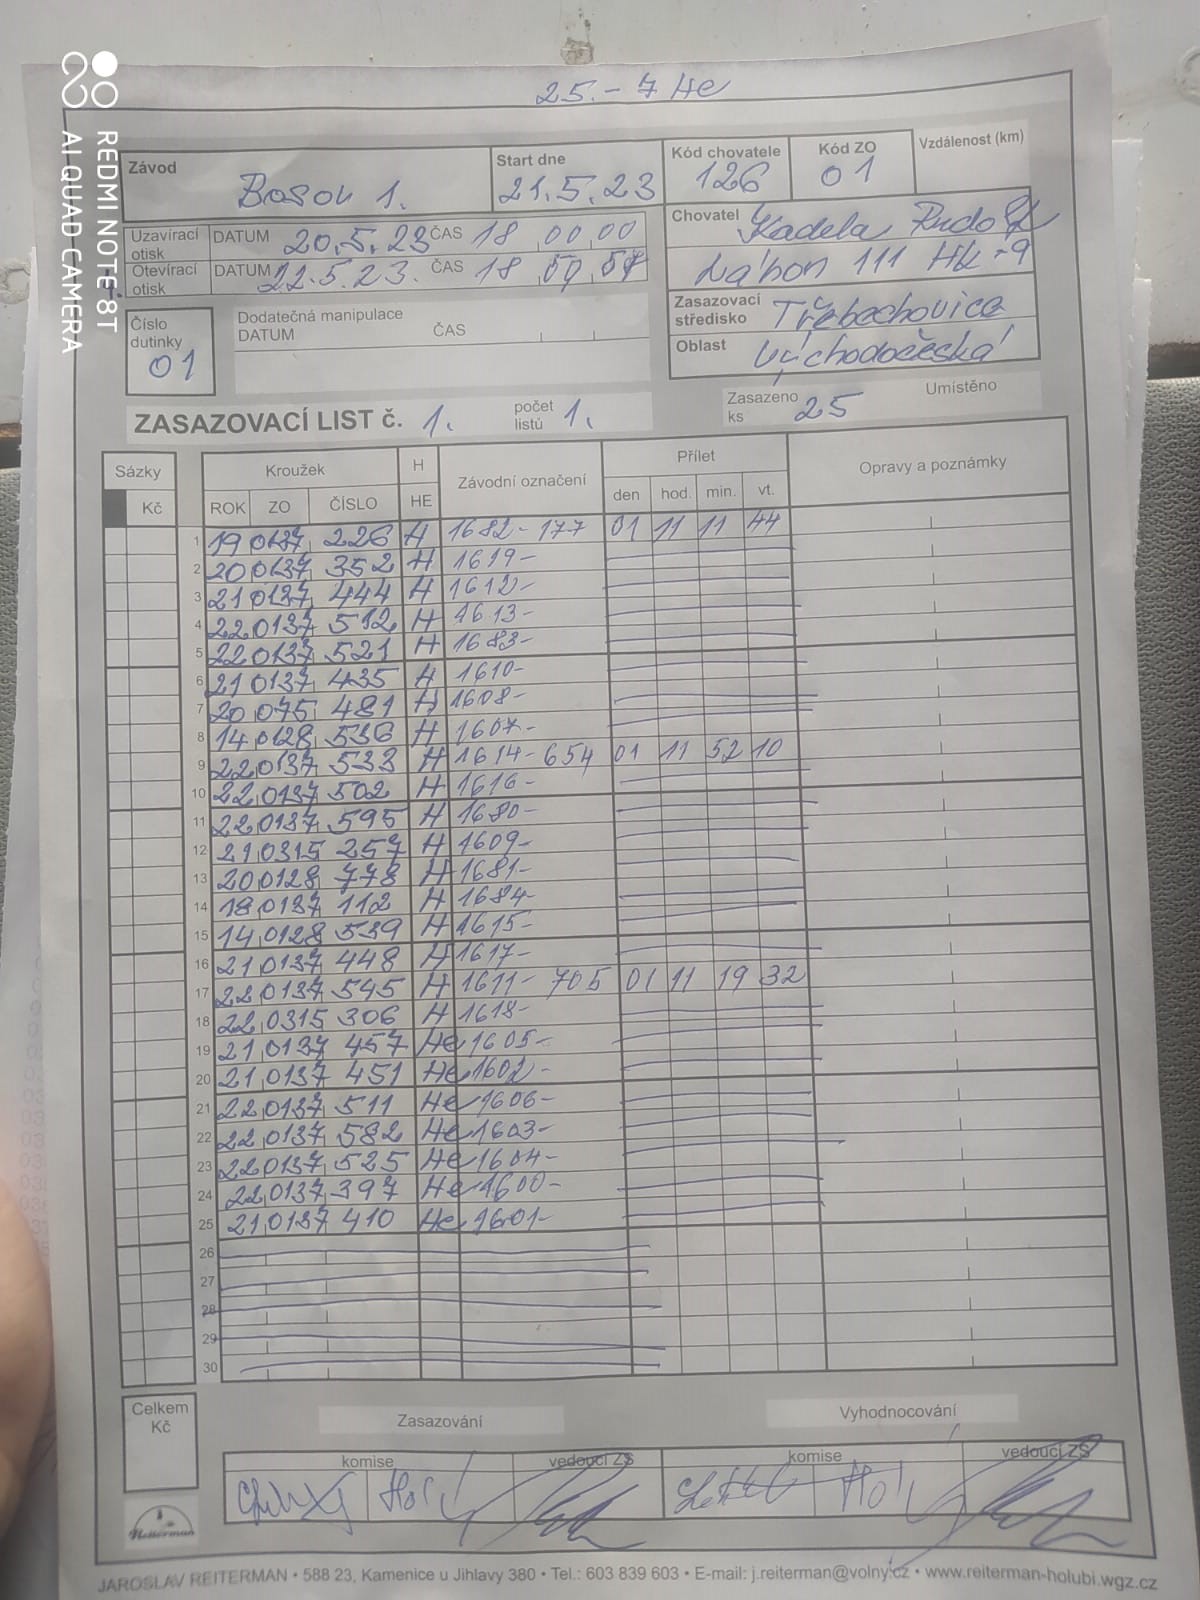 25.- 7 He
Závod
Bosou 1.
Start dne
21.5.23
Kód chovatele
126
Kód ZO
01
Vzdálenost (km)
Uzavírací otisk DATUM 20.5.23 ČAS 18 00 00
Otevírací otisk DATUM 22.5.23. ČAS 18
Chovatel Kadela Rudolf
Náhon 111 HK-9
Číslo dutinky
01
Dodatečná manipulace
DATUM ČAS
Zasazovací středisko Třebechovice
Oblast Východočeská
ZASAZOVACÍ LIST č. 1. počet listů 1.
Zasazeno ks 25 Umístěno
Sázky Kroužek H Závodní označení Přílet Opravy a poznámky
Kč ROK ZO ČÍSLO HE den hod. min. vt.
1 19 0137 226 H 1682- 177 01 11 11 44
2 20 0137 352 H 1619-
3 21 0137 444 H 1612-
4 22 0137 512 H 1613-
5 22 0137 521 H 1683-
6 21 0137 435 H 1610-
7 20 075 481 H 1608-
8 14 0128 536 H 1607-
9 22 0137 533 H 1614- 654 01 11 52 10
10 22 0137 502 H 1616-
11 22 0137 595 H 1680-
12 21 0315 257 H 1609-
13 20 0128 778 H 1681-
14 18 0137 112 H 1684-
15 14 0128 539 H 1615-
16 21 0137 448 H 1617-
17 22 0137 545 H 1611- 705 01 11 19 32
18 22 0315 306 H 1618-
19 21 0137 457 He 1605-
20 21 0137 451 He 1602-
21 22 0137 511 He 1606-
22 22 0137 582 He 1603-
23 22 0137 525 He 1604-
24 22 0137 397 He 1600-
25 21 0137 410 He 1601-
26
27
28
29
30
Celkem Kč
Zasazování
Vyhodnocování
komise vedoucí ZS komise vedoucí ZS
Reiterman
JAROSLAV REITERMAN • 588 23, Kamenice u Jihlavy 380 • Tel.: 603 839 603 • E-mail: j.reiterman@volny.cz • www.reiterman-holubi.wgz.cz
REDMI NOTE 8T
AI QUAD CAMERA